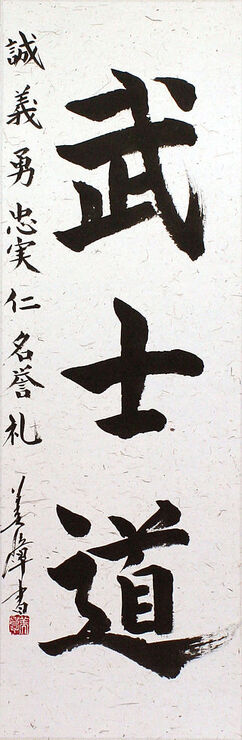 武士道
誠義勇忠実仁名誉礼
書